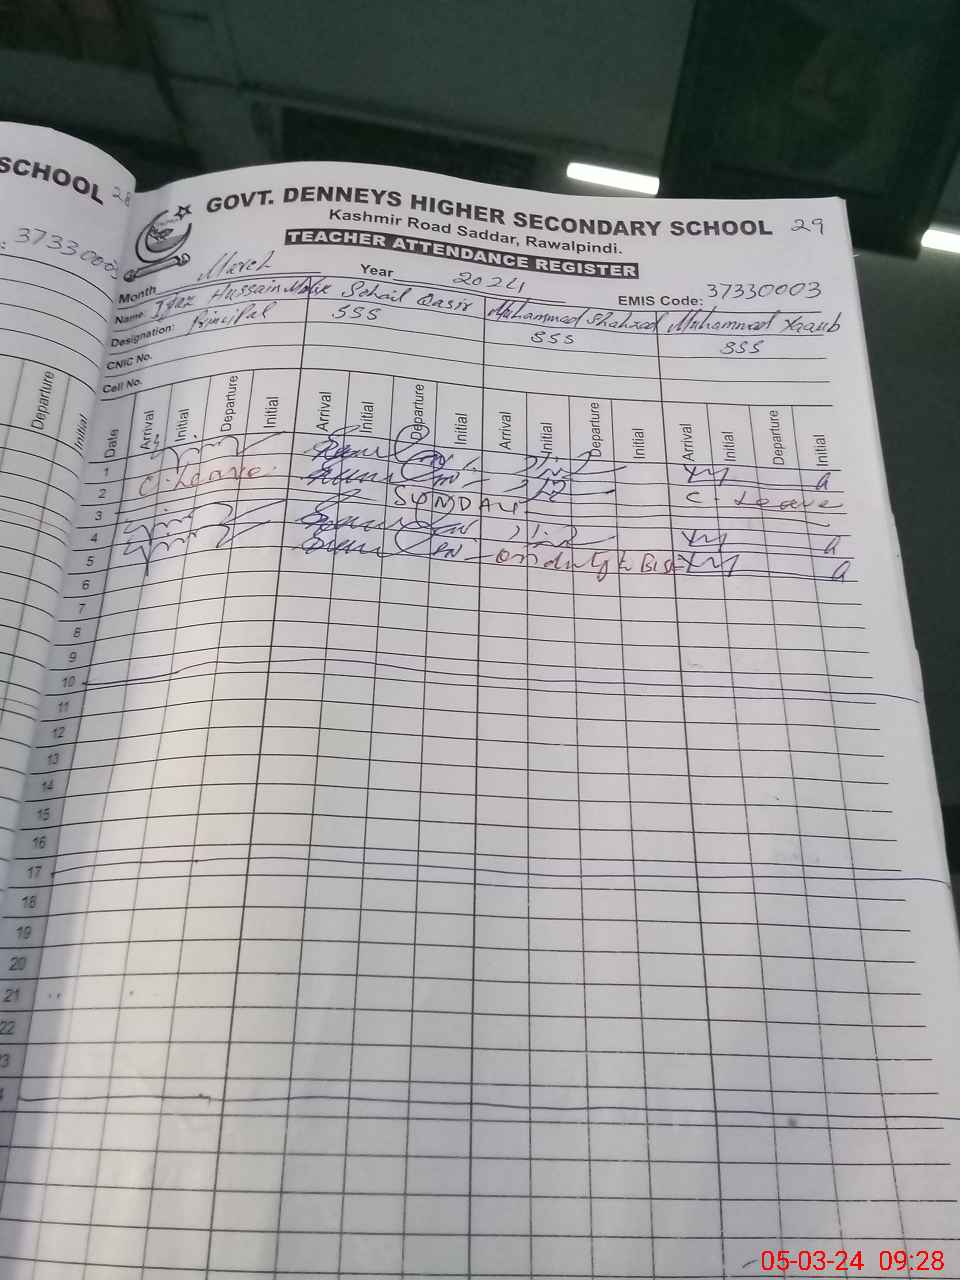 SCHOOL 28
37330003
Departure
Initial
GOVT. DENNEYS HIGHER SECONDARY SCHOOL 29
Kashmir Road Saddar, Rawalpindi.
TEACHER ATTENDANCE REGISTER
Month March Year 2024 EMIS Code: 37330003
Name: Ijaz Hussain Malik Sohail Qasir Muhammad Shahzad Muhammad Yaqub
Designation: Principal SSS SSS SSS
CNIC No.
Cell No.
Date Arrival Initial Departure Initial Arrival Initial Departure Initial Arrival Initial Departure Initial Arrival Initial Departure Initial
1
2 C. Leave C. Leave
3 SUNDAY
4
5 On duty
6
7
8
9
10
11
12
13
14
15
16
17
18
19
20
21
22
05-03-24 09:28